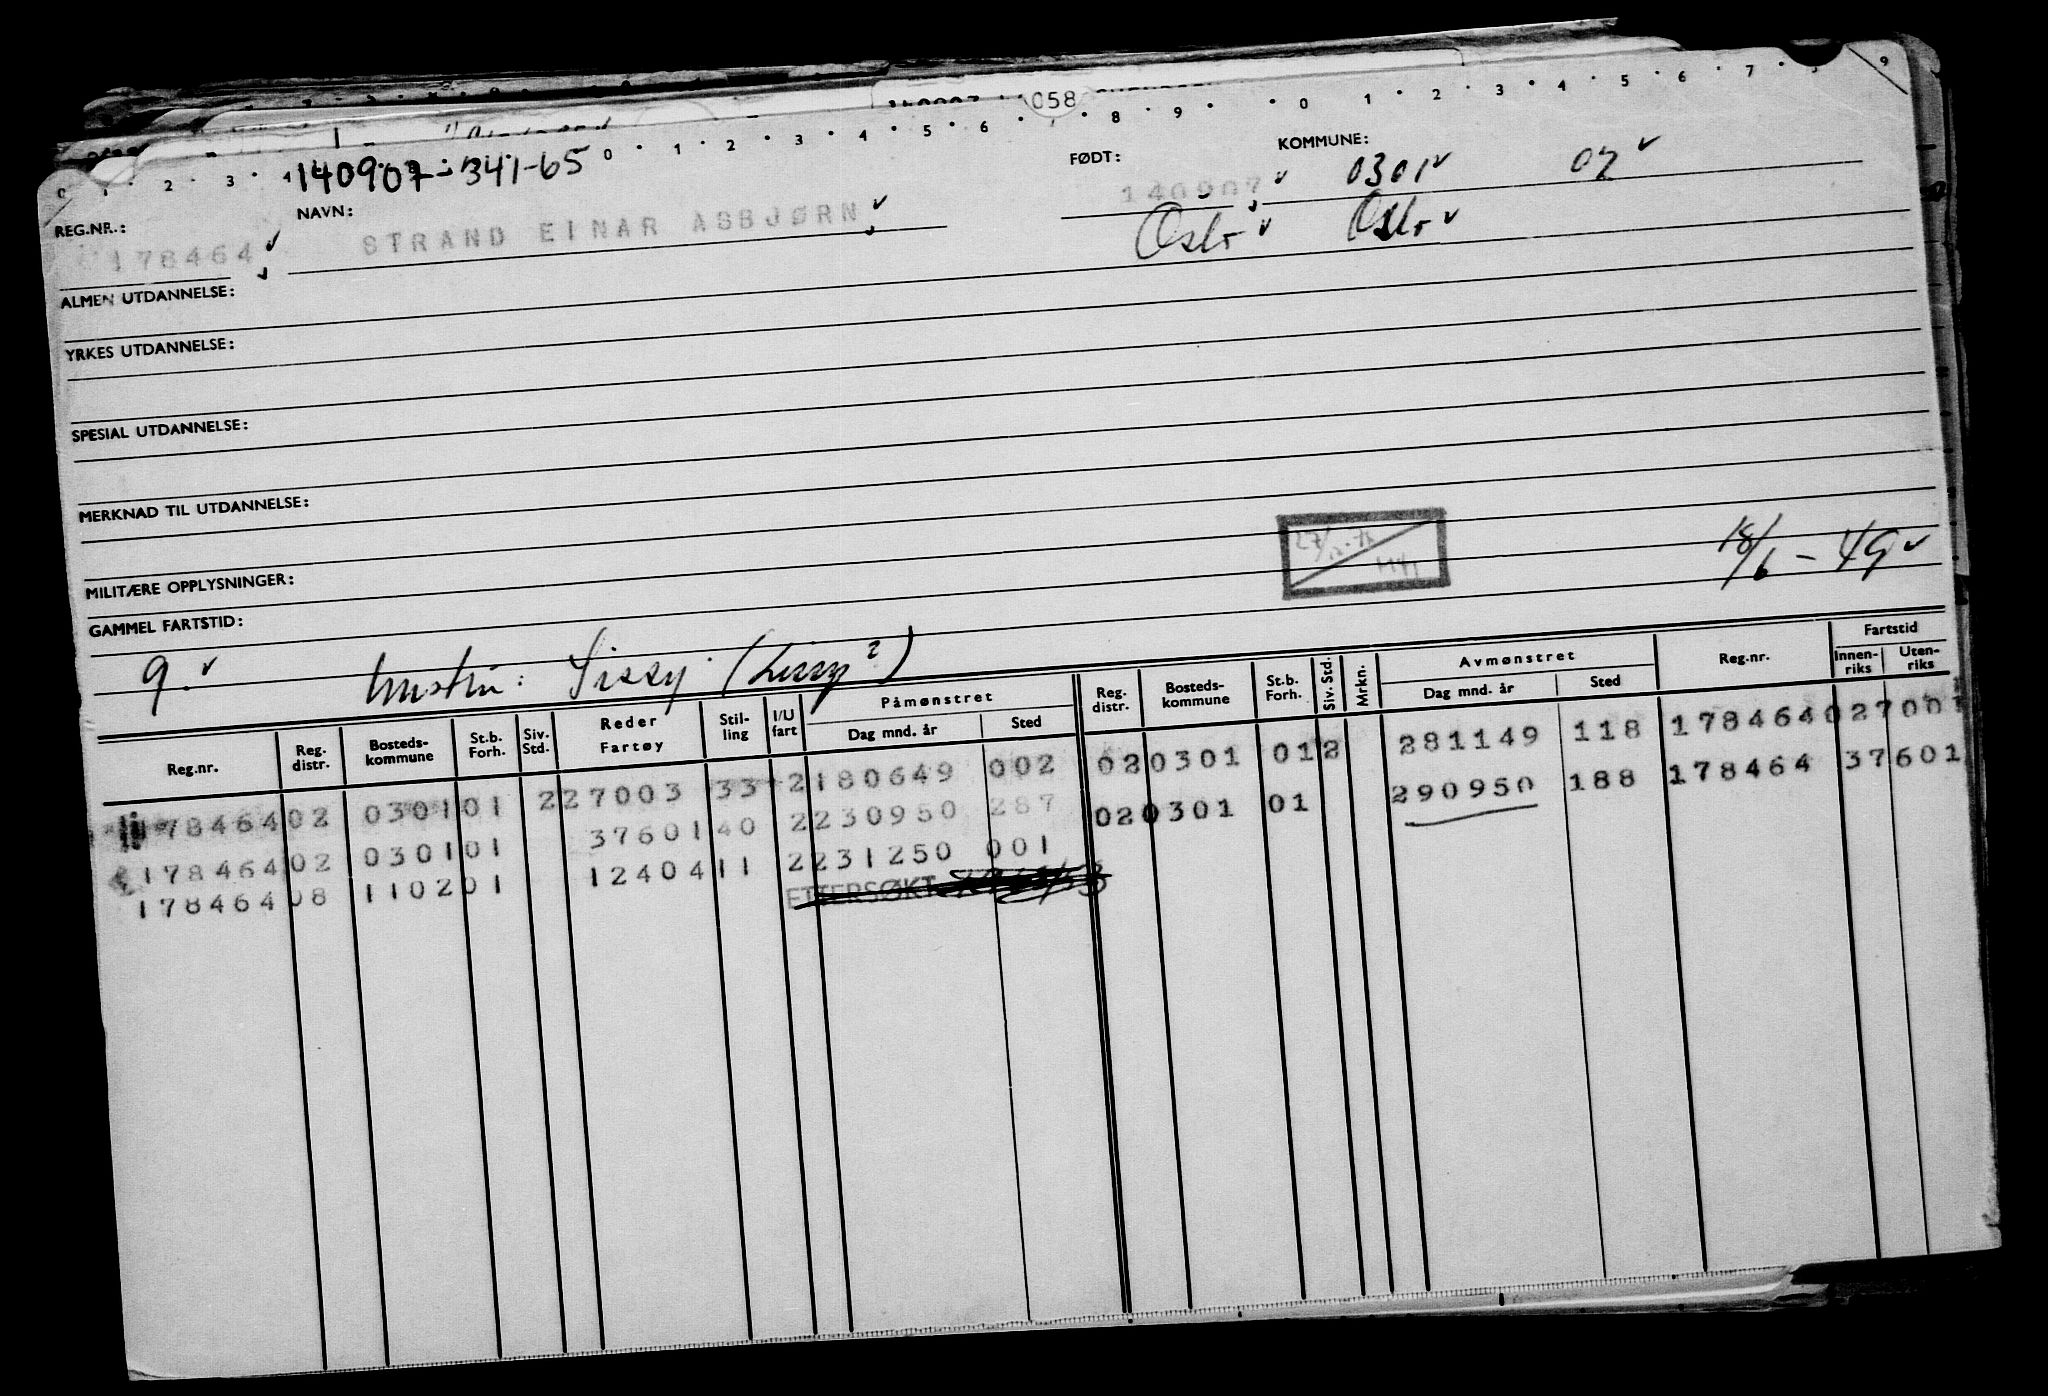 058
0 1 2 3 4 5 6 7 8 9 0 1 2 3 4 5 6 7 8 9
140907-341-65
FØDT: KOMMUNE:
REG.NR.: NAVN: 140907 0301 02
178464 STRAND EINAR ASBJØRN Oslo Oslo
ALMEN UTDANNELSE:
YRKES UTDANNELSE:
SPESIAL UTDANNELSE:
MERKNAD TIL UTDANNELSE:
MILITÆRE OPPLYSNINGER: 18/6 - 49
GAMMEL FARTSTID:
9. hustru: Sissy (Lissy?)
Reg.nr. Reg. distr. Bosteds-kommune St.b. Forh. Siv. Std. Reder Fartøy Stil-ling I/U fart Påmønstret Dag mnd. år Sted Reg. distr. Bosteds-kommune St.b. Forh. Siv. Std. Mrkn. Avmønstret Dag mnd. år Sted Reg.nr. Fartstid Innen-riks Uten-riks
178464 02 0301 01 2 27003 33 2 180649 002 02 0301 01 2 281149 118 178464 027001
178464 02 0301 01 37601 40 2 230950 287 02 0301 01 290950 188 178464 37601
178464 08 1102 01 12404 11 2 231250 001
ETTERSØKT